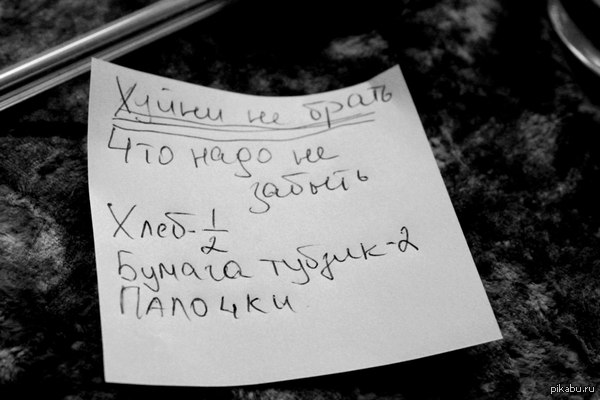 Хуйни не брать
Что надо не
забыть
Хлеб-1/2
Бумага тубзик-2
Палочки
pikabu.ru